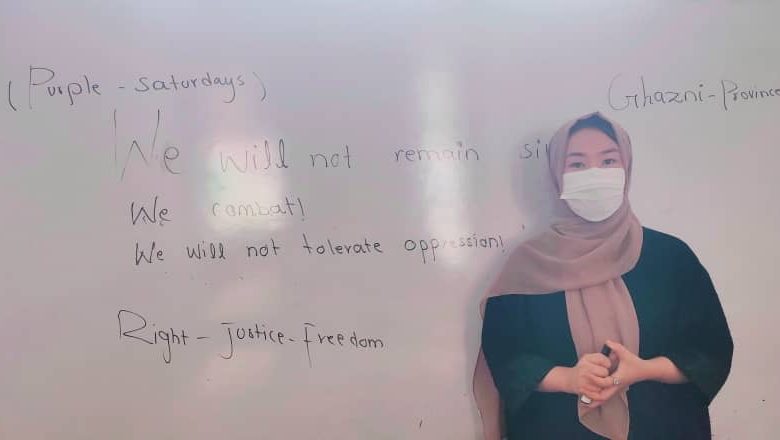 (Purple - Saturdays)
Ghazni - Province
We will not remain
We combat!
We will not tolerate oppression!
Right - Justice - Freedom